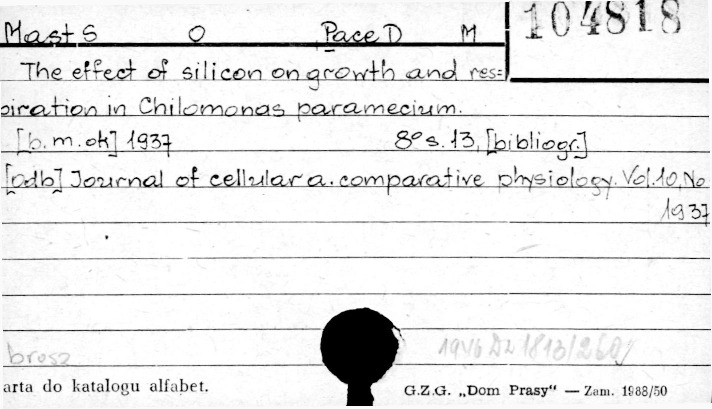 104818
Mast S O Pace D M
The effect of silicon on growth and res=
piration in Chilomonas paramecium.
[b.m.ok] 1937 8° s. 13, [bibliogr.]
[odb] Journal of cellular a. comparative physiology. Vol. 10, No
1937
brosz
1946 Dz 1813/260j
arta do katalogu alfabet. G.Z.G. „Dom Prasy“ — Zam. 1988/50